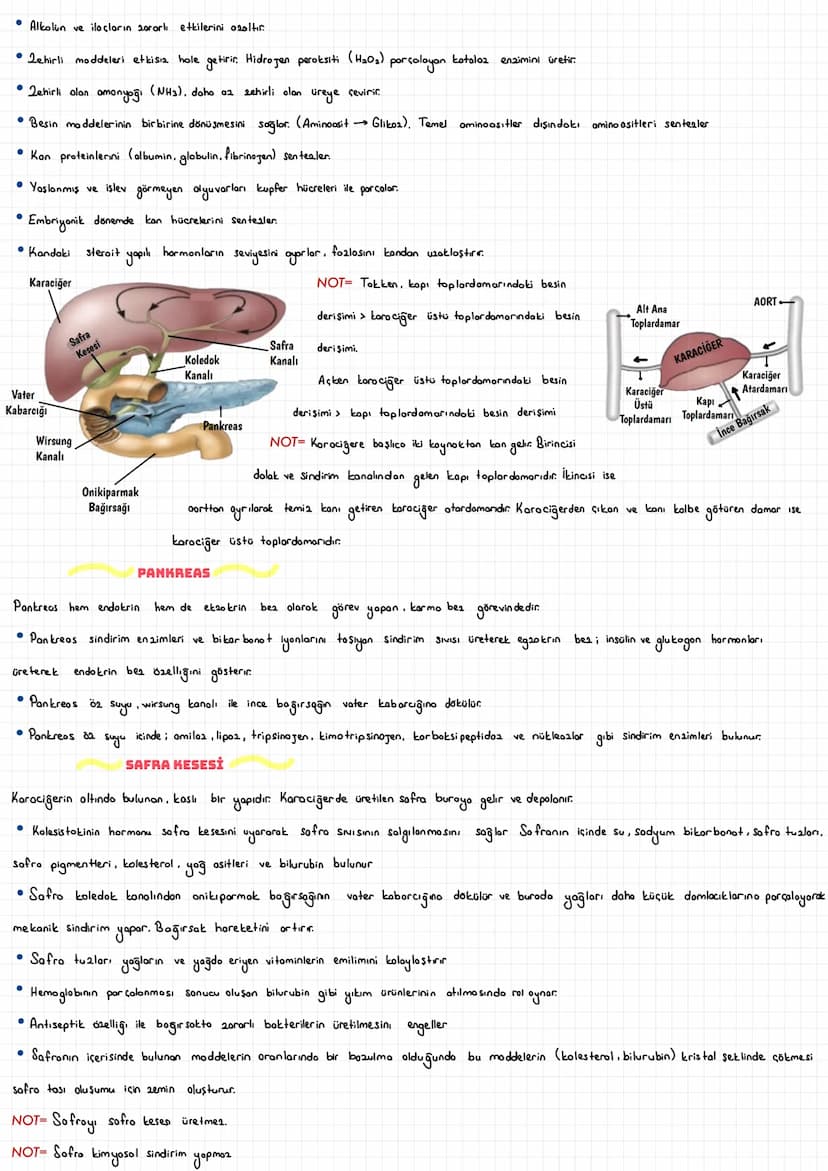 • Alkolün ve ilaçların zararlı etkilerini azaltır.
• Zehirli maddeleri etkisiz hale getirir. Hidrojen peroksiti (H₂O₂) parçalayan katalaz enzimini üretir.
• Zehirli olan amonyağı (NH₃), daha az zehirli olan üreye çevirir.
• Besin maddelerinin birbirine dönüşmesini sağlar. (Aminoasit → Glikoz). Temel aminoasitler dışındaki aminoasitleri sentezler
• Kan proteinlerini (albumin, globulin, fibrinojen) sentezler.
• Yaşlanmış ve işlev görmeyen alyuvarları kupfer hücreleri ile parçalar.
• Embriyonik dönemde kan hücrelerini sentezler.
• Kandaki steroit yapılı hormonların seviyesini ayarlar, fazlasını kandan uzaklaştırır.
Karaciğer
Safra
Kesesi
Koledok
Kanalı
Safra
Kanalı
Vater
Kabarcığı
Pankreas
Wirsung
Kanalı
Onikiparmak
Bağırsağı
NOT= Tokken, kapı toplardamarındaki besin
derişimi > karaciğer üstü toplardamarındaki besin
derişimi.
Açken karaciğer üstü toplardamarındaki besin
derişimi > kapı toplardamarındaki besin derişimi
Alt Ana
Toplardamar
AORT
KARACİĞER
Karaciğer
Üstü
Toplardamarı
Kapı
Toplardamarı
Karaciğer
Atardamarı
İnce Bağırsak
NOT= Karaciğere başlıca iki kaynaktan kan gelir. Birincisi
dalak ve sindirim kanalından gelen kapı toplardamarıdır. İkincisi ise
aorttan ayrılarak temiz kanı getiren karaciğer atardamarıdır. Karaciğerden çıkan ve kanı kalbe götüren damar ise
karaciğer üstü toplardamarıdır.
PANKREAS
Pankreas hem endokrin hem de ekzokrin bez olarak görev yapan, karma bez görevindedir.
• Pankreas sindirim enzimleri ve bikarbonat iyonlarını taşıyan sindirim sıvısı üreterek egzokrin bez; insülin ve glukagon hormonları
üreterek endokrin bez özelliğini gösterir.
• Pankreas öz suyu, wirsung kanalı ile ince bağırsağın vater kabarcığına dökülür.
• Pankreas öz suyu içinde; amilaz, lipaz, tripsinojen, kimotripsinojen, karboksipeptidaz ve nükleazlar gibi sindirim enzimleri bulunur.
SAFRA KESESİ
Karaciğerin altında bulunan, kaslı bir yapıdır. Karaciğerde üretilen safra buraya gelir ve depolanır.
• Kolesistokinin hormonu safra kesesini uyararak safra sıvısının salgılanmasını sağlar Safranın içinde su, sodyum bikarbonat, safra tuzları,
safra pigmentleri, kolesterol, yağ asitleri ve bilurubin bulunur
• Safra koledok kanalından onikiparmak bağırsağının vater kabarcığına dökülür ve burada yağları daha küçük damlacıklarına parçalayarak
mekanik sindirim yapar. Bağırsak hareketini artırır.
• Safra tuzları yağların ve yağda eriyen vitaminlerin emilimini kolaylaştırır
• Hemoglobinin parçalanması sonucu oluşan bilurubin gibi yıkım ürünlerinin atılmasında rol oynar.
• Antiseptik özelliği ile bağırsakta zararlı bakterilerin üretilmesini engeller
• Safranın içerisinde bulunan maddelerin oranlarında bir bozulma olduğunda bu maddelerin (kolesterol, bilurubin) kristal şeklinde çökmesi
safra taşı oluşumu için zemin oluşturur.
NOT= Safrayı safra kesesi üretmez.
NOT= Safra kimyasal sindirim yapmaz